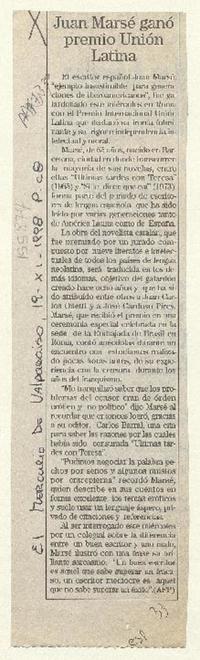 Juan Marsé ganó
premio Unión
Latina
El escritor español Juan Marsé,
"ejemplo inestimable para generaciones
de iberoamericanos", fue
galardonado este miércoles en Roma
con el Premio Internacional Unión
Latina que
y su rigor e independencia
intelectual y moral.
Marsé, de 65 años, nacido en Barcelona,
ciudad en donde transcurren
la mayoría de sus novelas, entre
ellas "Ultimas tardes con Teresa"
(1966) y "Si te dicen que caí" (1973)
forma parte del puñado de escritores
de lengua española que ha sido
leído por varias generaciones tanto
de América Latina como de España.
La obra del novelista catalán, que
fue premiado por un jurado compuesto
por nueve literatos e intelectuales
de todos los países de lengua
neolatina, será traducida en todos
idiomas, objetivo del galardón
creado hace ocho años y que ha sido
atribuido entre otros a Juan Carlos
Onetti y a José Cardoso Pires.
Marsé, que recibió el premio en una
ceremonia especial celebrada en la
sede de la Embajada de Brasil en
Roma, contó anécdotas durante un
encuentro con estudiantes realizado
pocas horas antes, de su experiencia
con la censura durante los
años del franquismo.
"Me tranquilizó saber que los problemas
del censor eran de órden
erótico y no político" dijo Marsé al
recordar que entonces logró, gracias
a su editor, Carlos Barral, una cita
para saber las razones por las cuales
había sido censurada "Ultimas tardes
con Teresa".
"Pudimos negociar la palabra pechos
por senos y algunos muslos
por entrepierna" recordó Marsé,
quien describe en sus cuentos en
forma excelente los temas eróticos
y suele usar un lenguaje áspero, privado
de citaciones y referencias.
Al ser interrogado este miércoles
por un colegial sobre la diferencia
entre un buen escritor y uno malo,
Marsé ilustró con una frase su brillante
sarcasmo: "Un buen escritor
es aquel que sabe superar un fracaso,
un escritor mediocre es aquel
que no sabe superar un éxito".(AFP)
El Mercurio de Valparaíso 19-XI-1998 P. C8